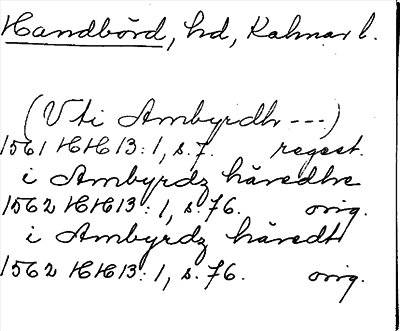 Handbörd, hd, Kalmar l.
(Vti Ambyrdh ---)
1561 HH13:1, s. 7. regest.
i Ambyrdz häredhe
1562 HH13:1, s. 76. orig.
i Ambyrdz häredt
1562 HH13:1, s. 76. orig.